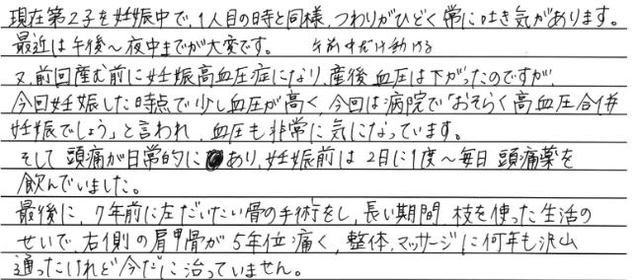 現在第2子を妊娠中で、1人目の時と同様、つわりがひどく常に吐き気があります。
最近は午後〜夜中までが大変です。　午前中だけ動ける
又、前回産む前に妊娠高血圧症になり、産後血圧は下がったのですが、
今回妊娠した時点で少し血圧が高く、今回は病院で「おそらく高血圧合併
妊娠でしょう」と言われ、血圧も非常に気になっています。
そして頭痛が日常的にあり、妊娠前は2日に1度〜毎日頭痛薬を
飲んでいました。
最後に、7年前に左だいたい骨の手術をし、長い期間、枝を使った生活の
せいで、右側の肩甲骨が5年位痛く、整体、マッサージに何年も沢山
通ったけれど今だに治っていません。